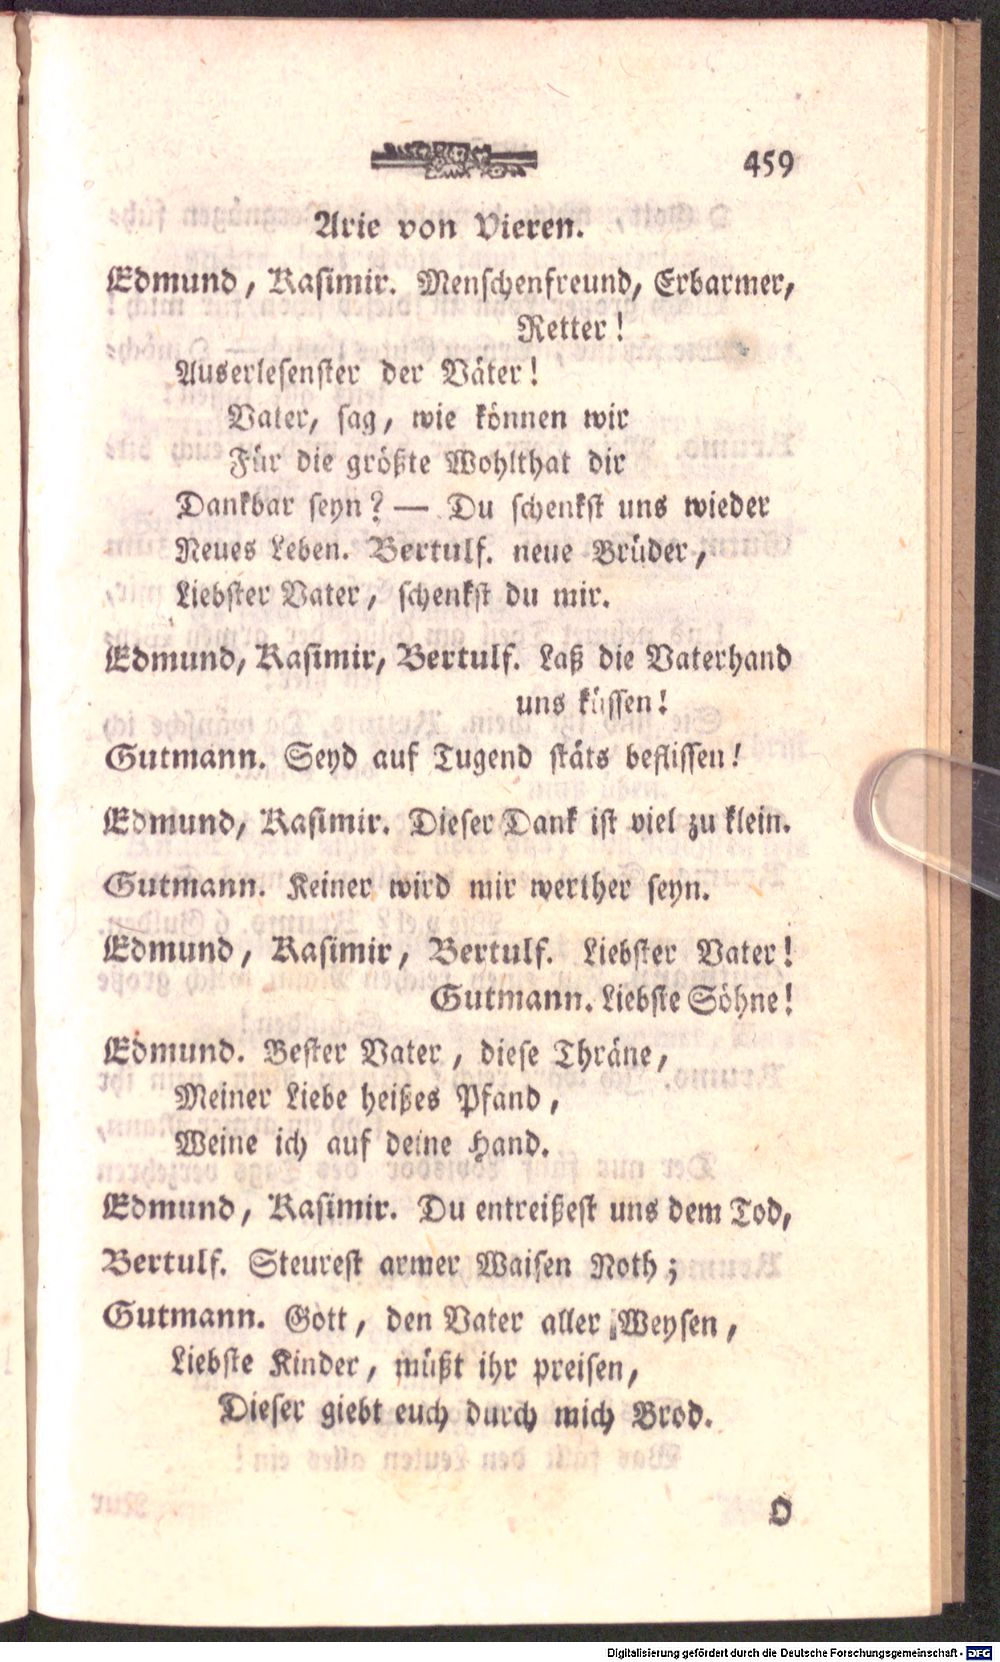 459
Arie von Vieren.
Edmund, Kasimir. Menschenfreund, Erbarmer,
Retter!
Auserlesenster der Väter!
Vater, sag, wie können wir
Für die größte Wohlthat dir
Dankbar seyn? — Du schenkst uns wieder
Neues Leben. Bertulf. neue Brüder,
Liebster Vater, schenkst du mir.
Edmund, Kasimir, Bertulf. Laß die Vaterhand
uns küssen!
Gutmann. Seyd auf Tugend stäts beflissen!
Edmund, Kasimir. Dieser Dank ist viel zu klein.
Gutmann. Keiner wird mir werther seyn.
Edmund, Kasimir, Bertulf. Liebster Vater!
Gutmann. Liebste Söhne!
Edmund. Bester Vater, diese Thräne,
Meiner Liebe heißes Pfand,
Weine ich auf deine Hand.
Edmund, Kasimir. Du entreißest uns dem Tod,
Bertulf. Steurest armer Waisen Noth;
Gutmann. Gott, den Vater aller Weysen,
Liebste Kinder, müßt ihr preisen,
Dieser giebt euch durch mich Brod.
O
Digitalisierung gefördert durch die Deutsche Forschungsgemeinschaft - DFG